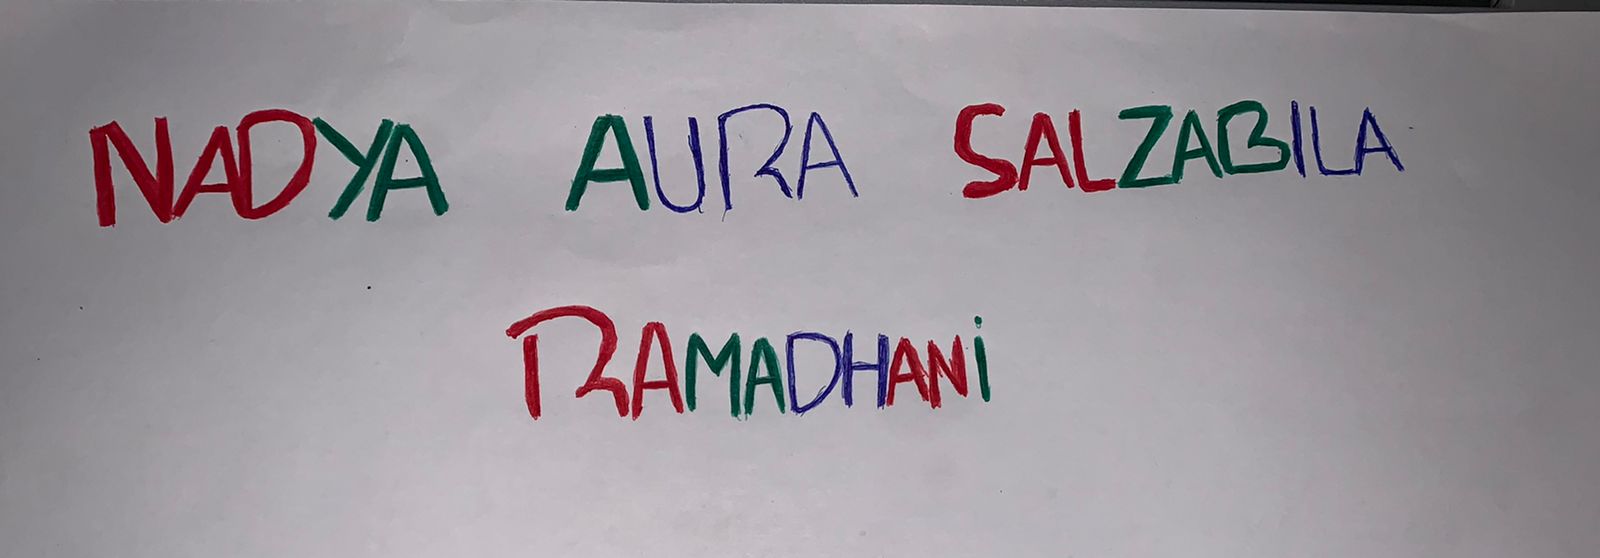 NADYA AURA SALZABILA
RAMADHANi